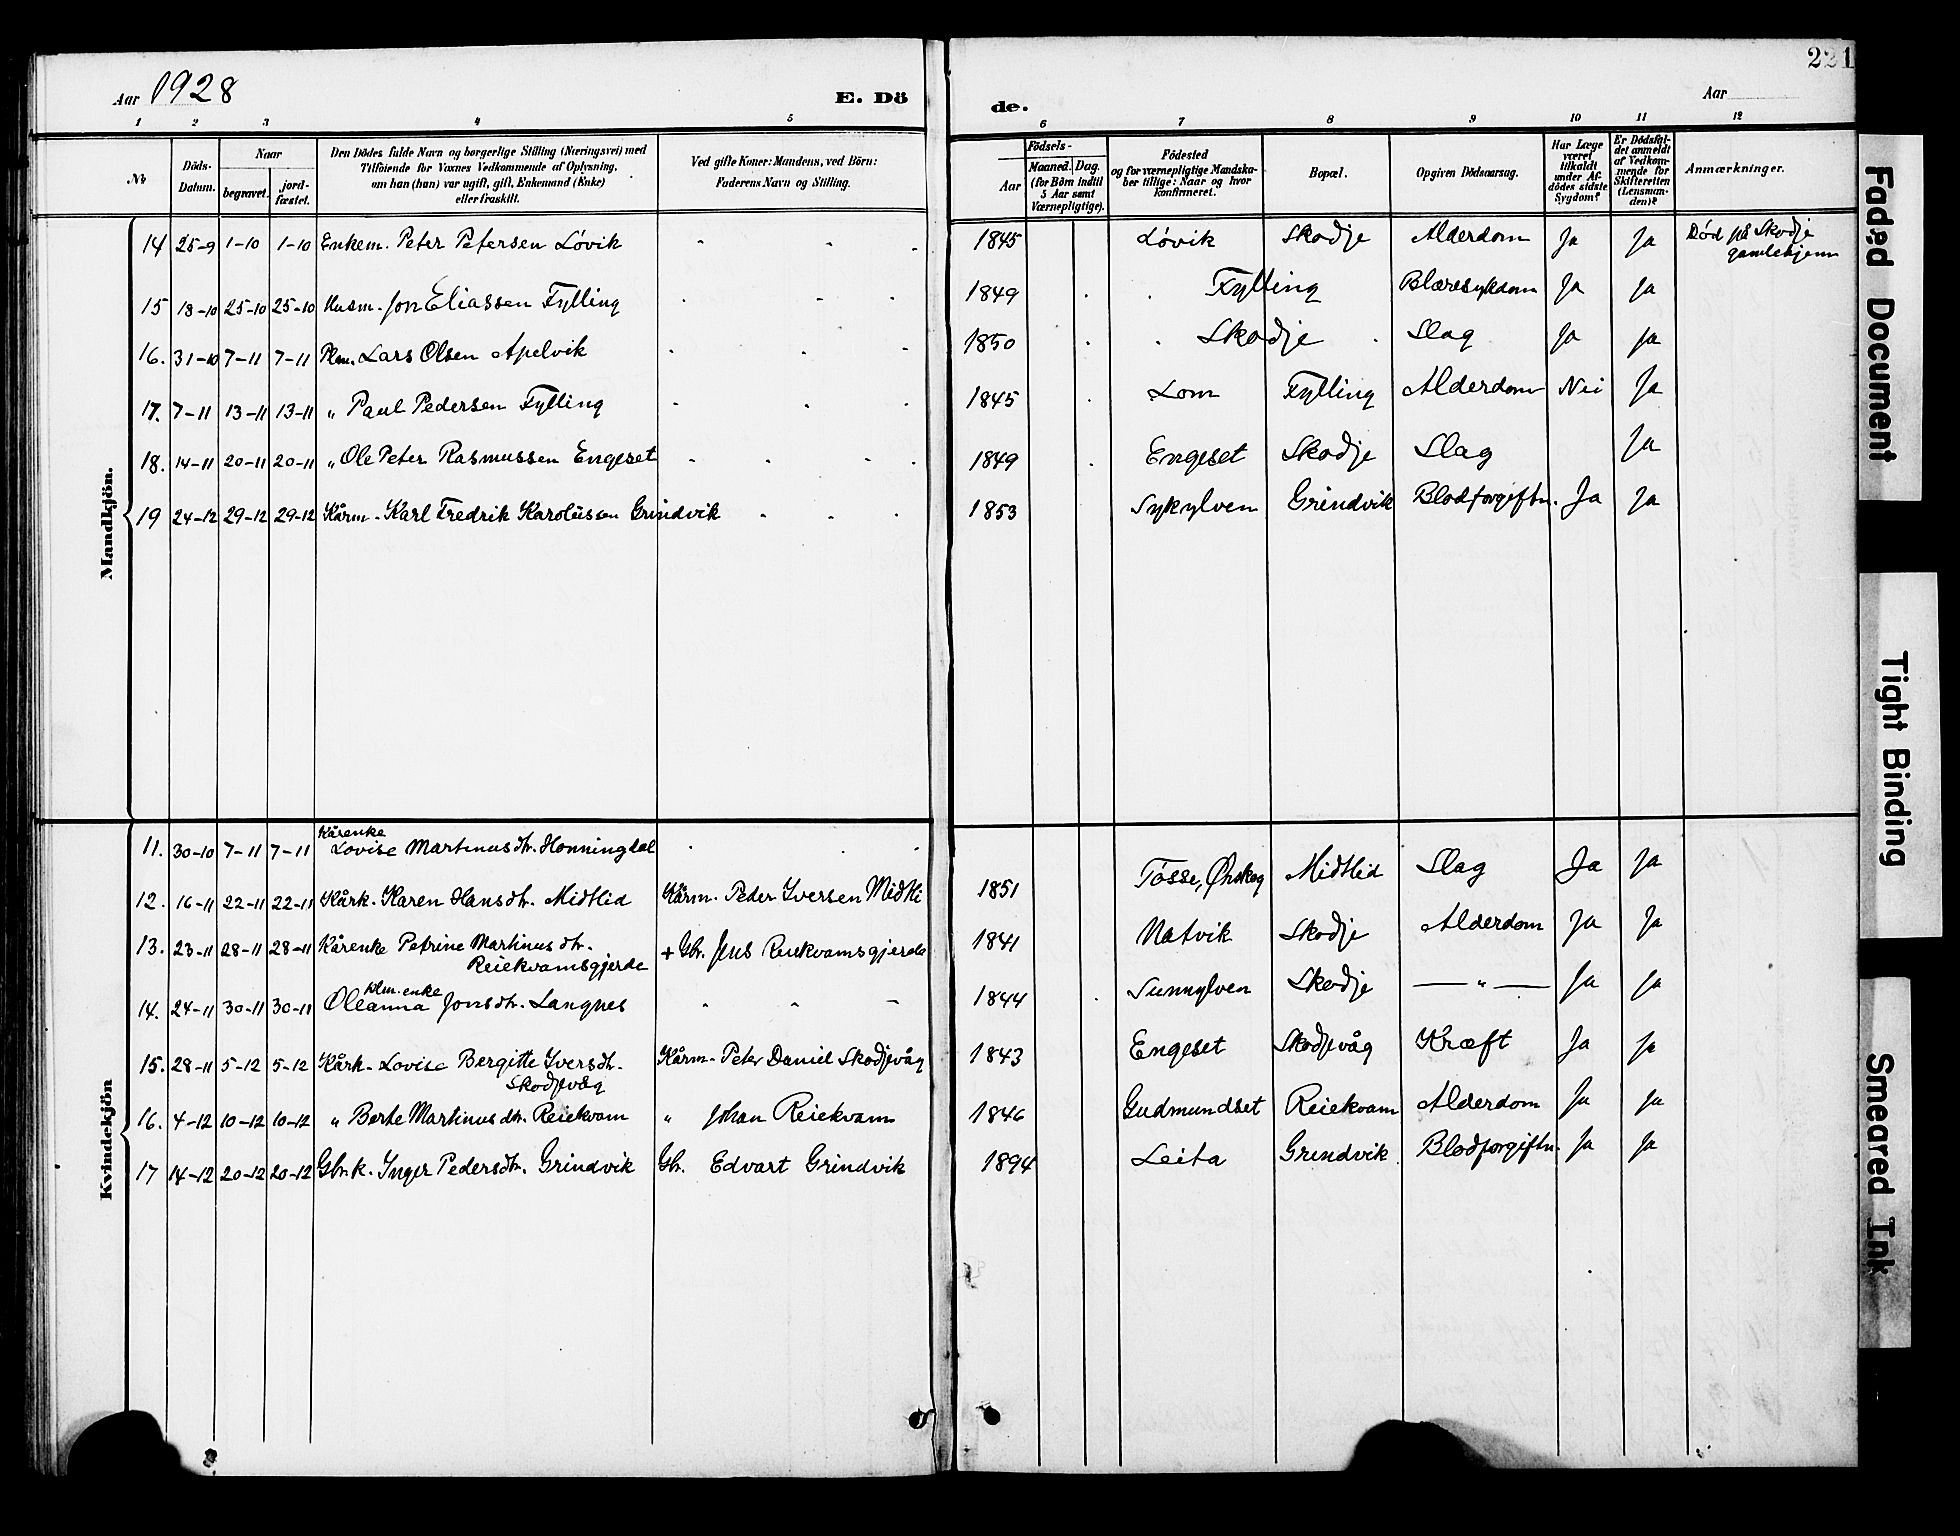 221
Aar 1928
E. Dö
de.
Aar
1 2 3 4 5 6 7 8 9 10 11 12
No
Döds-Datum.
Naar
begravet.
jord-fæstet.
Den Dödes fulde Navn og borgerlige Stilling (Næringsvei) med
Tilföiende for Voxnes Vedkommende af Oplysning,
om han (hun) var ugift, gift, Enkemand (Enke)
eller fraskilt.
Ved gifte Koner: Mandens, ved Börn:
Faderens Navn og Stilling.
Födsels-
Aar
Maaned. Dag.
(for Börn indtil
5 Aar samt
Værnepligtige).
Födested
og for værnepligtige Mandska-
ber tillige: Naar og hvor
konfirmeret.
Bopæl.
Opgiven Dödsaarsag.
Har Læge
været
tilkaldt
under Af-
dödes sidste
Sygdom?
Er Dödsfal-
det anmeldt
af Vedkom-
mende for
Skifteretten
(Lensman-
den)?
Anmærkninger.
Mandkjön.
14 25-9 1-10 1-10 Enkem. Peter Petersen Lövik 1845 Lövik Skodje Alderdom Ja Ja Död på Skodje
gamlehjem
15 18-10 25-10 25-10 Husm. Jon Eliassen Fylling 1849 Fylling Blæresykdom Ja Ja
16. 31-10 7-11 7-11 Lars Olsen Apelvik 1850 Skodje Slag Ja Ja
17. 7-11 13-11 13-11 " Paul Pedersen Fylling 1845 Lom Fylling Alderdom Nei Ja
18. 14-11 20-11 20-11 " Ole Peter Rasmussen Engeset 1849 Engeset Skodje Slag Ja
19 24-12 29-12 29-12 Kårm. Karl Fredrik Karolüssen Grindvik 1853 Sykylven Grindvik Blodforgiftn. Ja Ja
Kvindekjön
Kårenke
11. 30-10 7-11 7-11 Lovise Martinusdtr. Honningdal
12. 16-11 22-11 22-11 Kårk. Karen Hansdtr. Midtlid Kårm. Peder Iversen Midtli 1851 Tøsse, Ørskog Midtlid Slag Ja Ja
13. 23-11 28-11 28-11 Kårenke Petrine Martinusdtr. + Gbr. Jens Reiekvamsgjerde 1841 Natvik Skodje Alderdom Ja Ja
Reiekvamsgjerde
enke
14. 24-11 30-11 30-11 Oleanna Jonsdtr. Langnes 1844 Sunnylven Skodje — " — Ja Ja
15. 28-11 5-12 5-12 Kårk. Lovise Bergitte Iversdtr. Kårm. Peter Daniel Skodjevåg 1843 Engeset Skodjevåg Kræft Ja Ja
Skodjevåg
16. 4-12 10-12 10-12 " Berte Martinusdtr. Reiekvam " Johan Reiekvam 1846 Gudmundset Reiekvam Alderdom Ja Ja
17 14-12 20-12 20-12 Gbr.k. Inger Pedersdtr. Grindvik Gbr. Edvart Grindvik 1894 Leita Grindvik Blodforgiftn. Ja Ja
Faded Document
Tight Binding
Smeared Ink